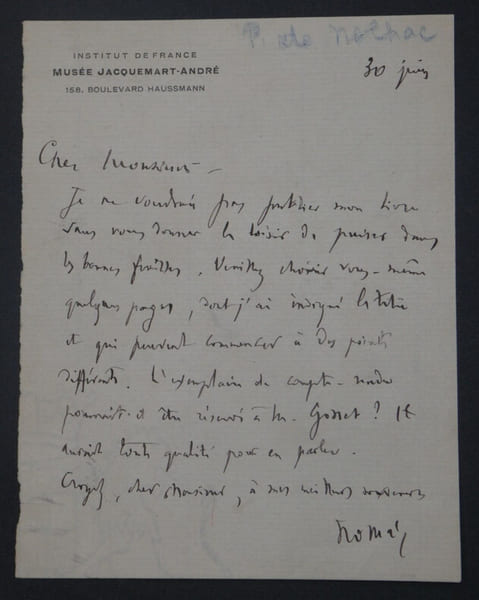 P. de Nolhac
INSTITUT DE FRANCE
MUSÉE JACQUEMART-ANDRÉ
158, BOULEVARD HAUSSMANN
30 juin
Cher Monsieur –
Je ne voudrais pas publier mon livre
sans vous donner le loisir de puiser dans
les bonnes feuilles. Veuillez choisir vous-même
quelques pages, dont j'ai indiqué le titre
et qui peuvent commencer à des points
différents. L'exemplaire de compte-rendu
pourrait-il être réservé à M. Gosset ? Il
aurait toute qualité pour en parler.
Croyez, cher Monsieur, à mes meilleurs sentiments